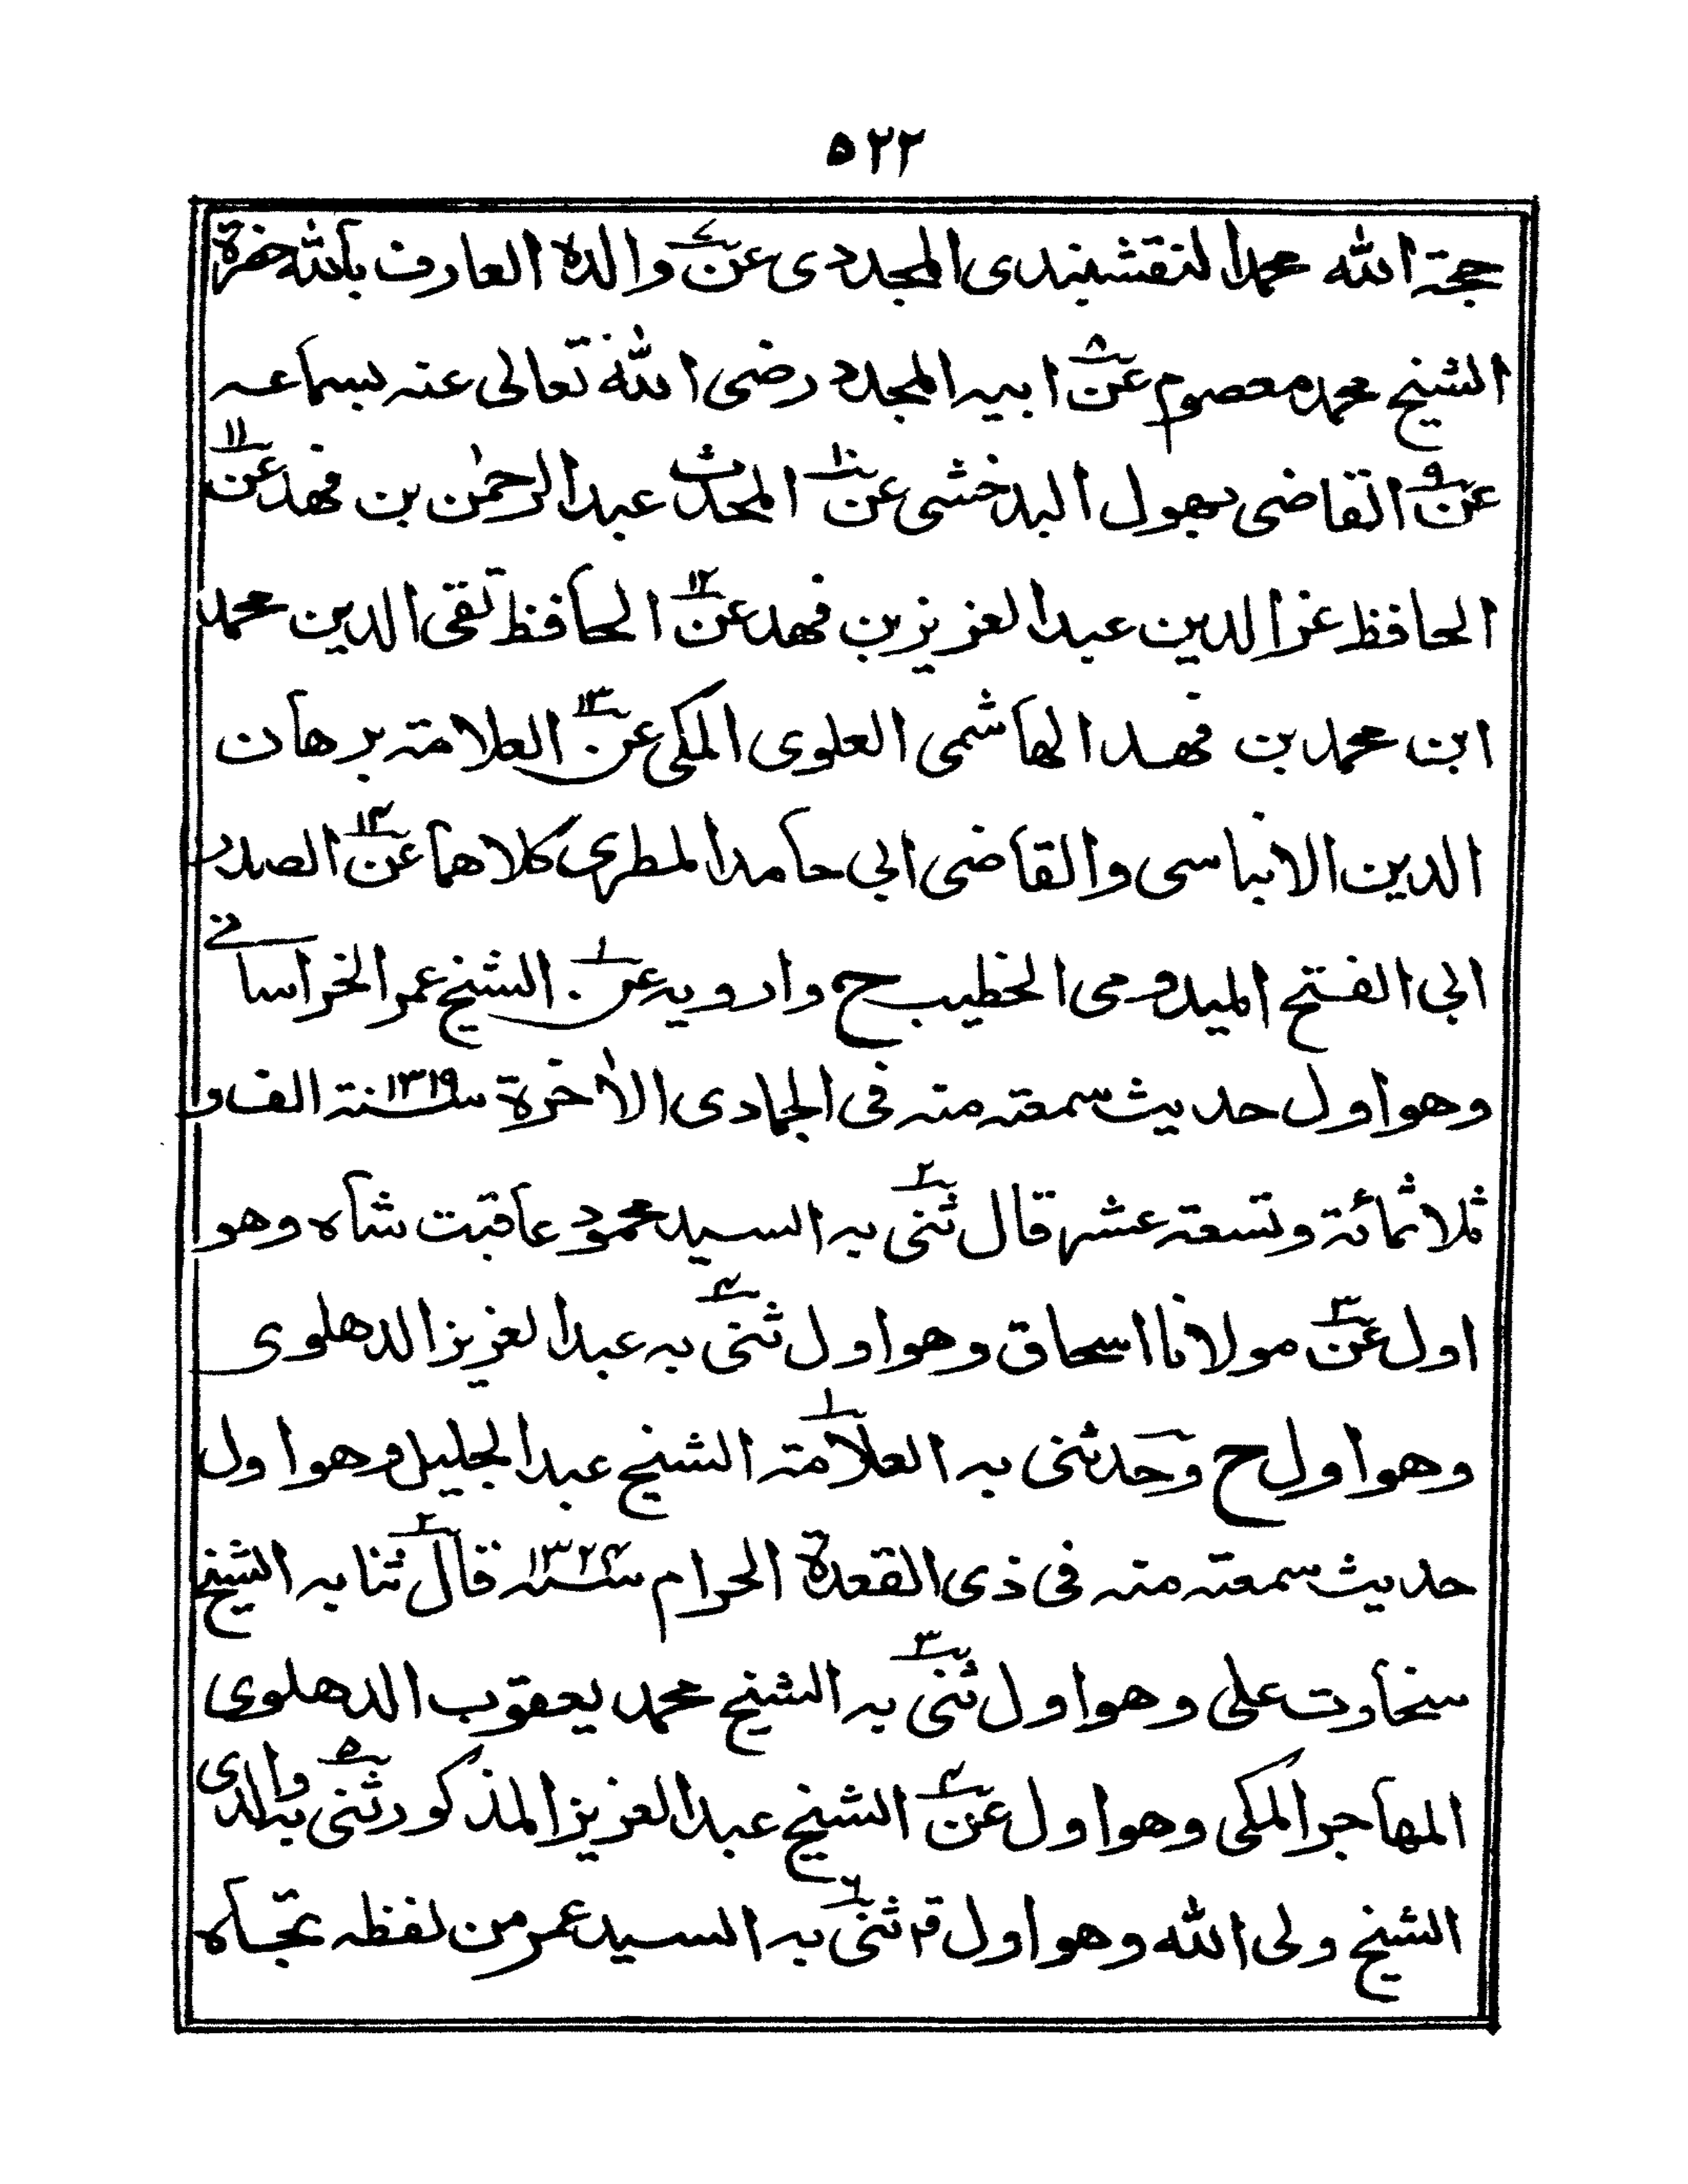 ٥٢٢
حجة الله محمد النقشبندی المجددی عن٧ والده العارف بالله حضرة
الشیخ محمد معصوم عن٨ ابیه المجدد رضی الله تعالی عنه بسماعه
عن٩ القاضی بهول البدخشی عن١٠ المحدث عبد الرحمٰن بن فهد عن١١
الحافظ عز الدین عبد العزیز بن فهد عن١٢ الحافظ تقی الدین محمد
ابن محمد بن فهد الهاشمی العلوی المکی عن١٣ العلامة برهان
الدین الانباسی والقاضی ابی حامد المطری کلاهما عن١٤ الصدر
ابی الفتح المیدومی الخطیب ح وارویه عن١ الشیخ عمر الخراسانے
وهو اول حدیث سمعته منه فی الجمادی الاٰخرة سنة ١٣١٩ الف و
ثلاثمائة وتسعة عشر قال ثنی٢ به السید محمود عاقبت شاه وهو
اول عن٣ مولانا اسحاق وهو اول ثنی٤ به عبد العزیز الدهلوی
وهو اول ح وحدثنی به العلامة١ الشیخ عبد الجلیل وهو اول
حدیث سمعته منه فی ذی القعدة الحرام سنه ١٣٢٤ قال٢ ثنا به الشیخ
سخاوت علی وهو اول ثنی٣ به الشیخ محمد یعقوب الدهلوی
المهاجر المکی وهو اول عن٤ الشیخ عبد العزیز المذکور ثنی٥ به والدی
الشیخ ولی الله وهو اول قم ثنی٦ به السید عمر من لفظه تجاه